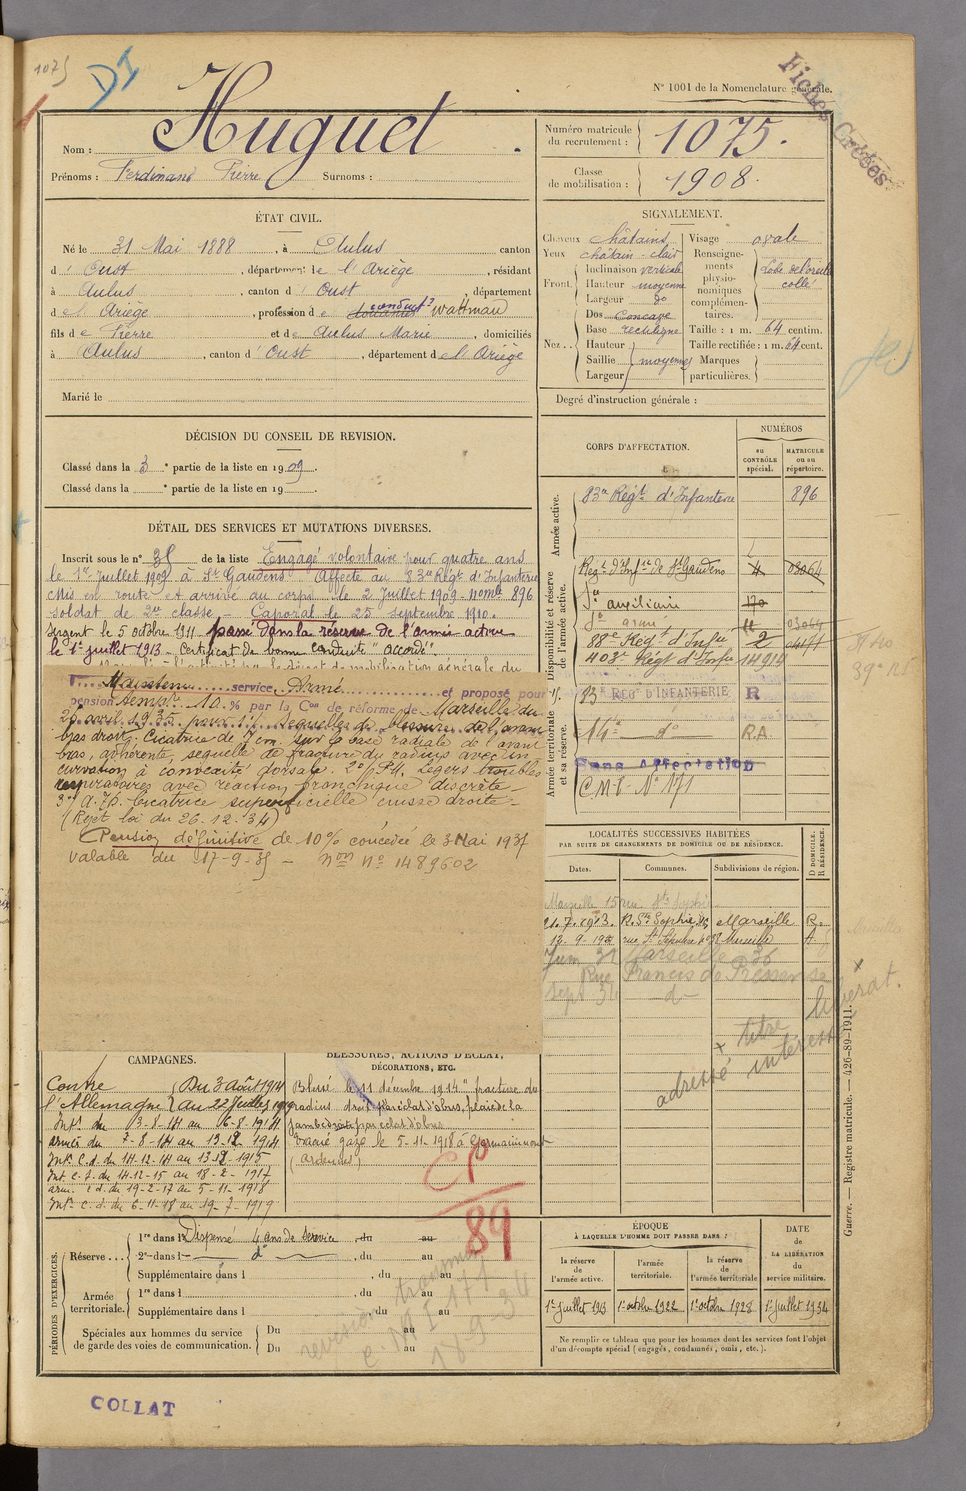 1075
DI
N° 1001 de la Nomenclature générale.
Fiches Créées
Nom : Huguet
Prénoms : Ferdinand Pierre Surnoms :
Numéro matricule du recrutement : 1075.
Classe de mobilisation : 1908.
ÉTAT CIVIL.
Né le 31 Mai 1888, à Aulus canton
d' Oust, département de l'Ariège, résidant
à Aulus, canton d' Oust, département
de l'Ariège, profession de wattman
fils de Pierre et de Aulus Marie, domiciliés
à Aulus, canton d' Oust, département de l'Ariège
Marié le
SIGNALEMENT.
Cheveux châtains
Yeux châtain-clair
Front. Inclinaison verticale
Hauteur moyenne
Largeur do
Nez.. Dos Concave
Base rectiligne
Hauteur
Saillie moyennes
Largeur
Visage ovale
Renseignements physionomiques complémentaires. Lobe de l'oreille collé
Taille : 1 m. 64 centim.
Taille rectifiée : 1 m. 64 cent.
Marques particulières.
Degré d'instruction générale :
DÉCISION DU CONSEIL DE REVISION.
Classé dans la 3e partie de la liste en 1909.
Classé dans la e partie de la liste en 19 .
DÉTAIL DES SERVICES ET MUTATIONS DIVERSES.
Inscrit sous le n° 35 de la liste Engagé volontaire pour quatre ans
le 1er Juillet 1909 à St Gaudens Affecté au 83e Régt d'Infanterie
Mis en route et arrivé au corps le 2 Juillet 1909 - nomle 896
soldat de 2e classe - Caporal le 25 septembre 1910.
Sergent le 5 octobre 1911 passé dans la réserve de l'armée active
le 1er juillet 1913 - Certificat de bonne conduite "accordé".
Maintenu service Armé et proposé pour
pension temp.re 10 % par la Con de réforme de Marseille du
26 avril 1935 pour 1°/ Séquelles de blessure de l'avant
bras droit. Cicatrice de 7 cm. sur la base radiale de l'avant
bras, adhérente, sequelle de fracture du radius avec in
curvation à convexité dorsale. 2°/ P.H. Légers troubles
respiratoires avec réaction bronchique discrète -
3°/ Cicatrice superficielle cuisse droite -
(Rejet loi du 26.12.34)
Pension définitive de 10% concédée le 3 Mai 1937
Valable du 17-9-35 - N° 1489602
CORPS D'AFFECTATION.
NUMÉROS
au CONTRÔLE spécial.
MATRICULE ou au répertoire.
Armée active.
83e Régt d'Infanterie 896
Disponibilité et réserve de l'armée active.
Régt d'Infie de St Gaudens 4 03064
do auxiliaire
do armé 03064
88e Régt d'Infie 2
408e Régt d'Infie 14914
Armée territoriale et sa réserve.
93e RÉGt D'INFANTERIE R
do R.A.
Sans Affectation
C.M.I. N° 171
LOCALITÉS SUCCESSIVES HABITÉES
PAR SUITE DE CHANGEMENTS DE DOMICILE OU DE RÉSIDENCE.
Dates. Communes. Subdivisions de région. D DOMICILE. R RÉSIDENCE.
Marseille 15 rue Ste Sophie
21.7.1913. R. Ste Sophie Marseille R.
Juin 31 Marseille 36
Rue Francis de Pressensé
Sept 34 -d-
+ titre libérat.
adresse intéressé
CAMPAGNES.
Contre l'Allemagne
Du 3 août 1914
au 22 Juillet 1919
Intr. du 3-8-14 au 6-8-1914
armées du 7-8-14 au 13-12-1914
Intr. C.d. du 14-12-14 au 13-12-1915
Int. C.d. du 14-12-15 au 18-2-1917
arm. Cd. du 19-2-17 au 5-11-1918
Intr. C.d. du 6-11-18 au 19-7-1919
BLESSURES, ACTIONS D'ÉCLAT, DÉCORATIONS, ETC.
Blessé le 11 décembre 1914 "fracture du
radius droit par éclat d'obus, plaie de la
jambe droite par éclat d'obus
Evacué gazé le 5-11-1918 à Germainmont
(Ardennes)
CP
89
PÉRIODES D'EXERCICES.
Réserve... 1re dans l Dispensé 4 ans de service, du au
2e dans l do, du au
Supplémentaire dans l , du au
Armée territoriale. 1re dans l , du au
Supplémentaire dans l , du au
Spéciales aux hommes du service de garde des voies de communication. Du au
Du au
transmis
C.M.I 171
18-9-34
ÉPOQUE
À LAQUELLE L'HOMME DOIT PASSER DANS :
la réserve de l'armée active.
l'armée territoriale.
la réserve de l'armée territoriale
DATE DE LA LIBÉRATION du service militaire.
1er juillet 1913 1er octobre 1922 1er octobre 1928 1er juillet 1934
Ne remplir ce tableau que pour les hommes dont les services font l'objet
d'un décompte spécial (engagés, condamnés, omis, etc.).
Guerre. — Registre matricule. — 426-89-1911.
COLLAT